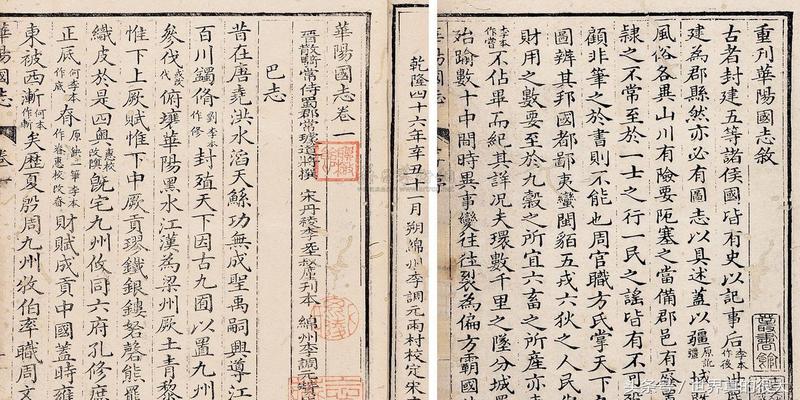 重刊華陽國志敘
古者封建五等諸侯國皆有史以記事后李本作後
建為郡縣然亦必有圖志以具述蓋以疆原訛疆城既
風俗各異山川有險要阨塞之當備郡邑有廢
隸之不常至於一士之行一民之謠皆有不可
顧非筆之於書則不能也周官職方氏掌天下
圖辨其邦國都鄙夷蠻閩貊五戎六狄之人民
財用之數要至於九穀之所宜六畜之所產亦
李本作嘗不佔畢而紀其詳况夫環數千里之墜分城
殆踰數十中間時異事變往往裂為偏方霸國
華陽國志
乾隆四十六年辛丑十一月朔綿州李調元雨村校定宋
華陽國志卷一
晉散騎常侍蜀郡常璩道將撰 宋丹稜李叔廑刊本 綿州李調元
巴志
昔在唐堯洪水滔天鯀功無成聖禹嗣興導江
百川蠲脩劉李本作修封殖天下因古九囿以置九州
參伐代俯壤華陽黑水江漢為梁州厥土青黎
惟下上厥賦惟下中厥貢璆鐵銀鏤砮磬熊羆
織皮於是四奧惠校改隩既宅九州攸同六府孔修庶
正辰何李本作底財賦成貢中國蓋時雍
東被西漸何本作斬矣歷夏殷周九州牧伯率職周文
華陽國志 卷一
头条号 / 世界真的很大